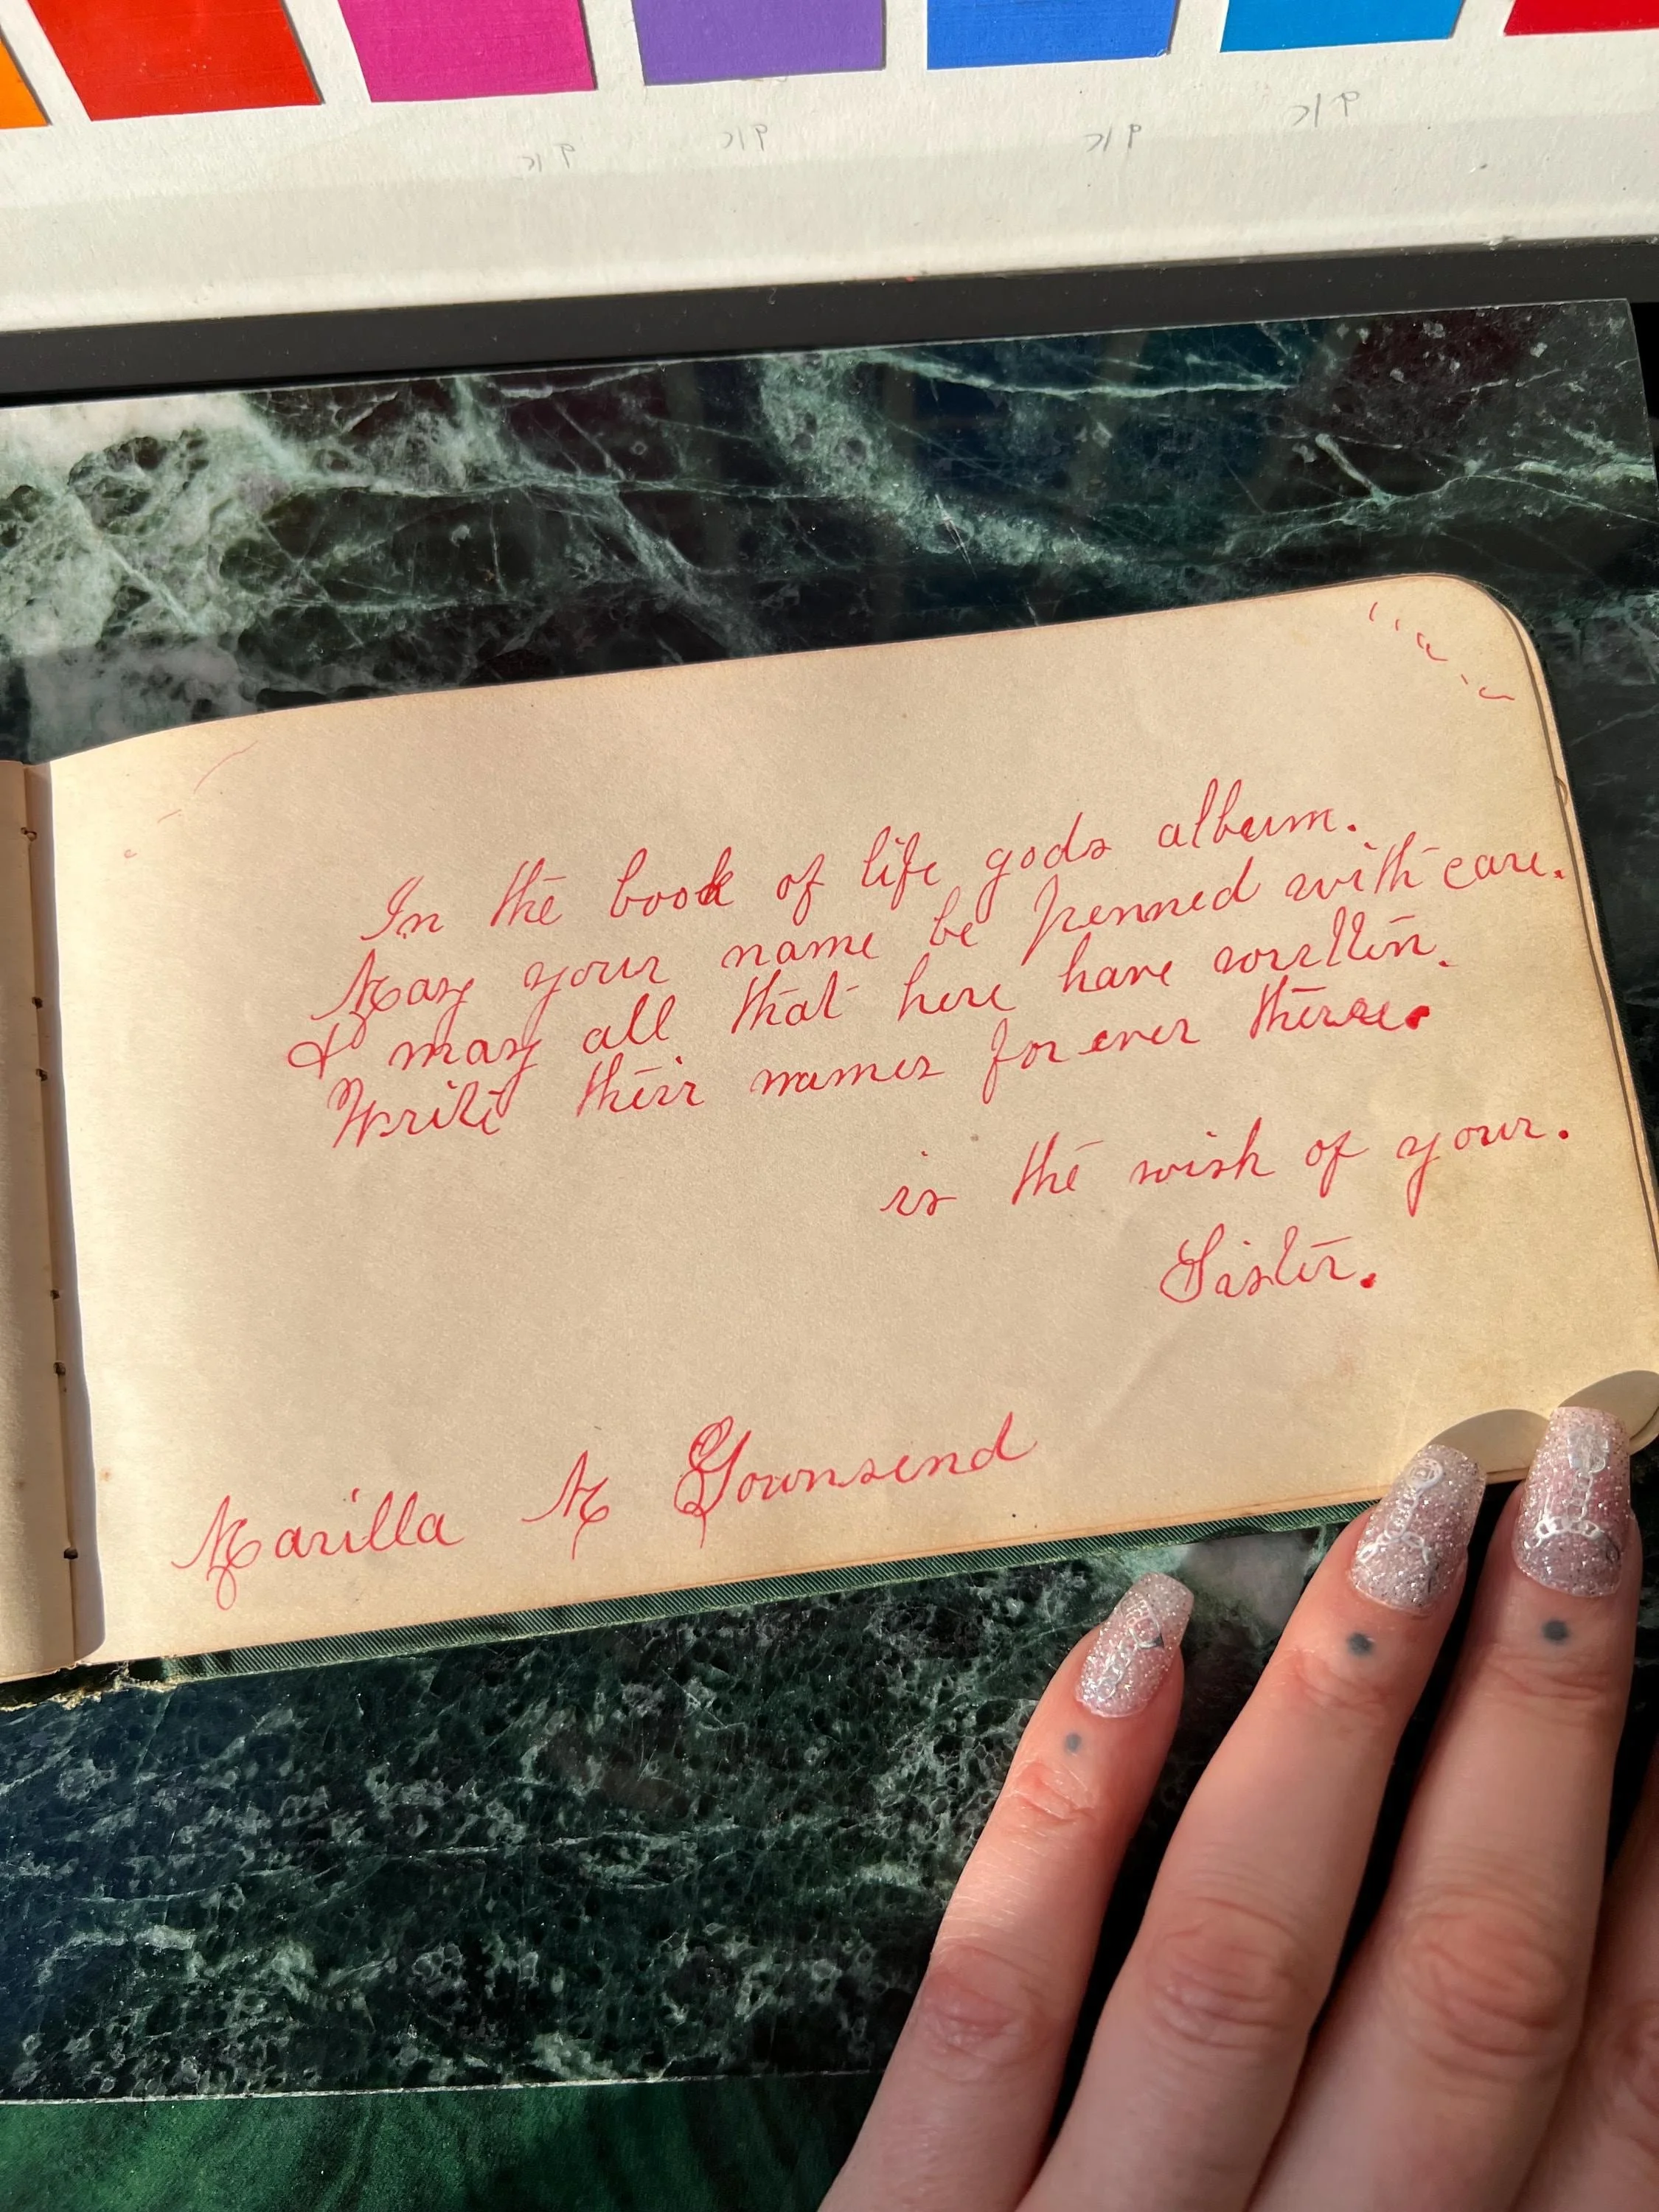 In the book of life gods album.
May your name be penned with care.
& may all that here have written.
Write their names forever there.
is the wish of your.
Sister.
Marilla M Townsend